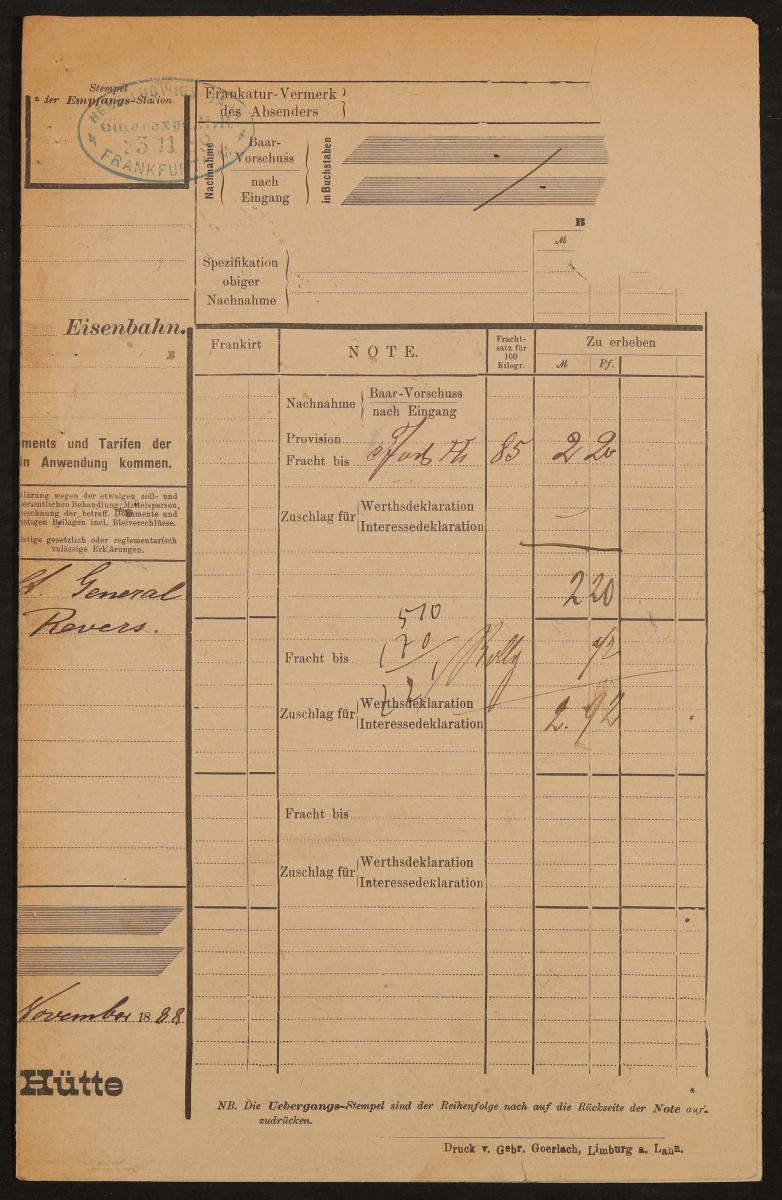 Stempel
der Empfangs-Station.
FRANKFU
Eisenbahn.
ments und Tarifen der
in Anwendung kommen.
lärung wegen der etwaigen zoll- und
eramtlichen Behandlung, Mittelsperson,
zeichnung der betreff. Dokumente und
nstigen Beilagen incl. Bleiverschlüsse.
stige gesetzlich oder reglementarisch
zulässige Erklärungen.
General
Revers.
November 1888
Hütte
Frankatur-Vermerk
des Absenders
Nachnahme
Baar-
Vorschuss
nach
Eingang
in Buchstaben
B
M
Spezifikation
obiger
Nachnahme
Frankirt
NOTE.
Fracht-
satz für
100
Kilogr.
Zu erheben
M Pf.
Nachnahme Baar-Vorschuss
nach Eingang
Provision
Fracht bis 85 2 20
Zuschlag für Werthsdeklaration
Interessedeklaration
2 20
510
Fracht bis 170
Zuschlag für Werthsdeklaration
Interessedeklaration
2.92
Fracht bis
Zuschlag für Werthsdeklaration
Interessedeklaration
NB. Die Uebergangs-Stempel sind der Reihenfolge nach auf die Rückseite der Note auf-
zudrücken.
Druck v. Gebr. Goerlach, Limburg a. Lann.